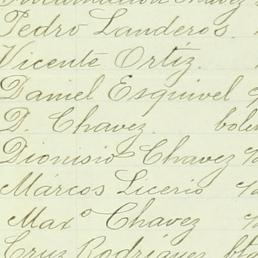 Chavez
Pedro Landeros.
Vicente Ortiz.
Daniel Esquivel
D. Chavez. bolet
Dionisio Chavez
Márcos Licerio
Maxº Chavez
Cruz Rodriguez bta